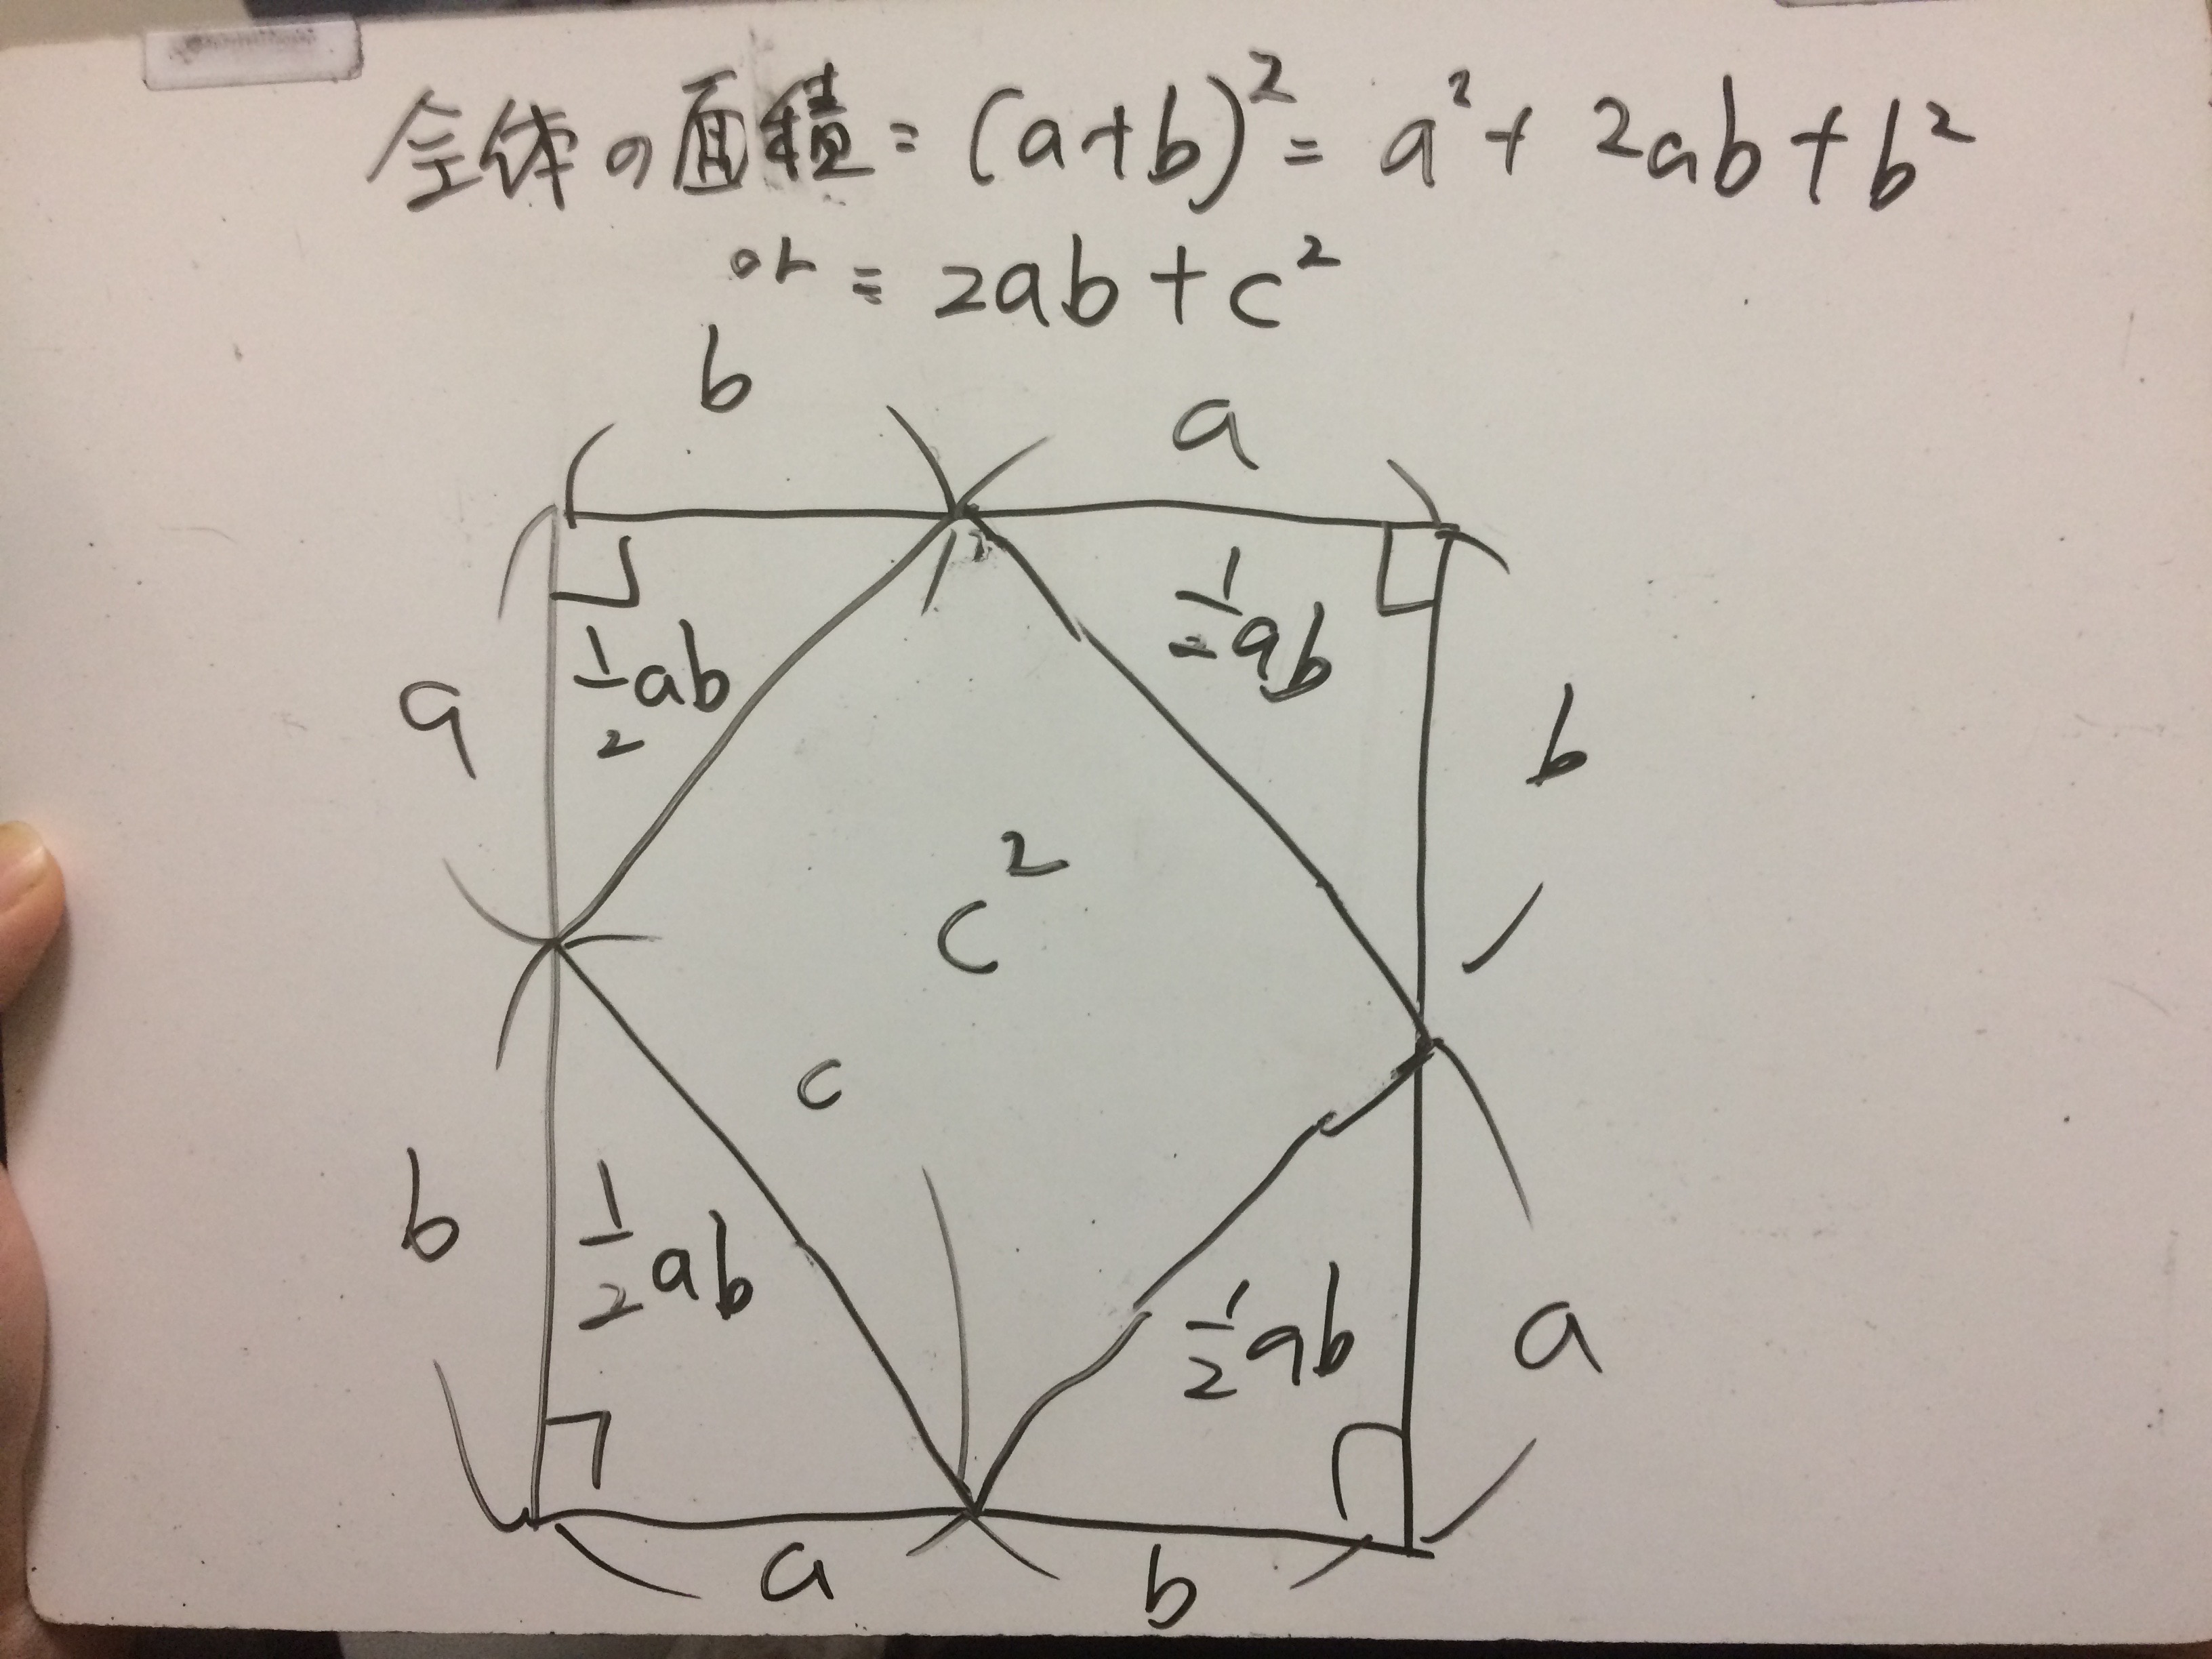 全体の面積 = (a+b)² = a² + 2ab + b²
or = 2ab + c²
b
a
1/2 ab
1/2 ab
a
b
c²
c
b
1/2 ab
1/2 ab
a
a
b